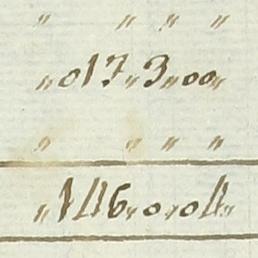 " " " "
"017"3"00"
" " " "
"146"0"04"